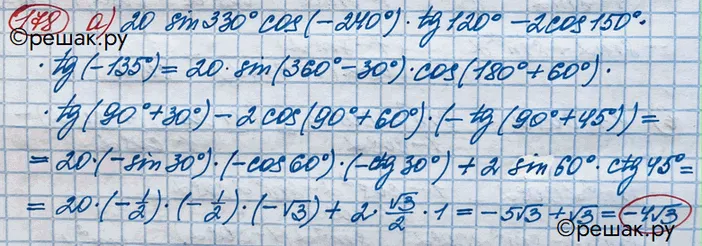 178 а) 20 sin 330° cos(-240°) · tg 120° - 2 cos 150° ·
©решак.ру
· tg(-135°) = 20 · sin(360°-30°) · cos(180°+60°) ·
· tg(90°+30°) - 2 cos(90°+60°) · (-tg(90°+45°)) =
= 20 · (-sin 30°) · (-cos 60°) · (-ctg 30°) + 2 sin 60° · ctg 45° =
= 20 · (-1/2) · (-1/2) · (-√3) + 2 · √3/2 · 1 = -5√3 + √3 = -4√3
©решак.ру